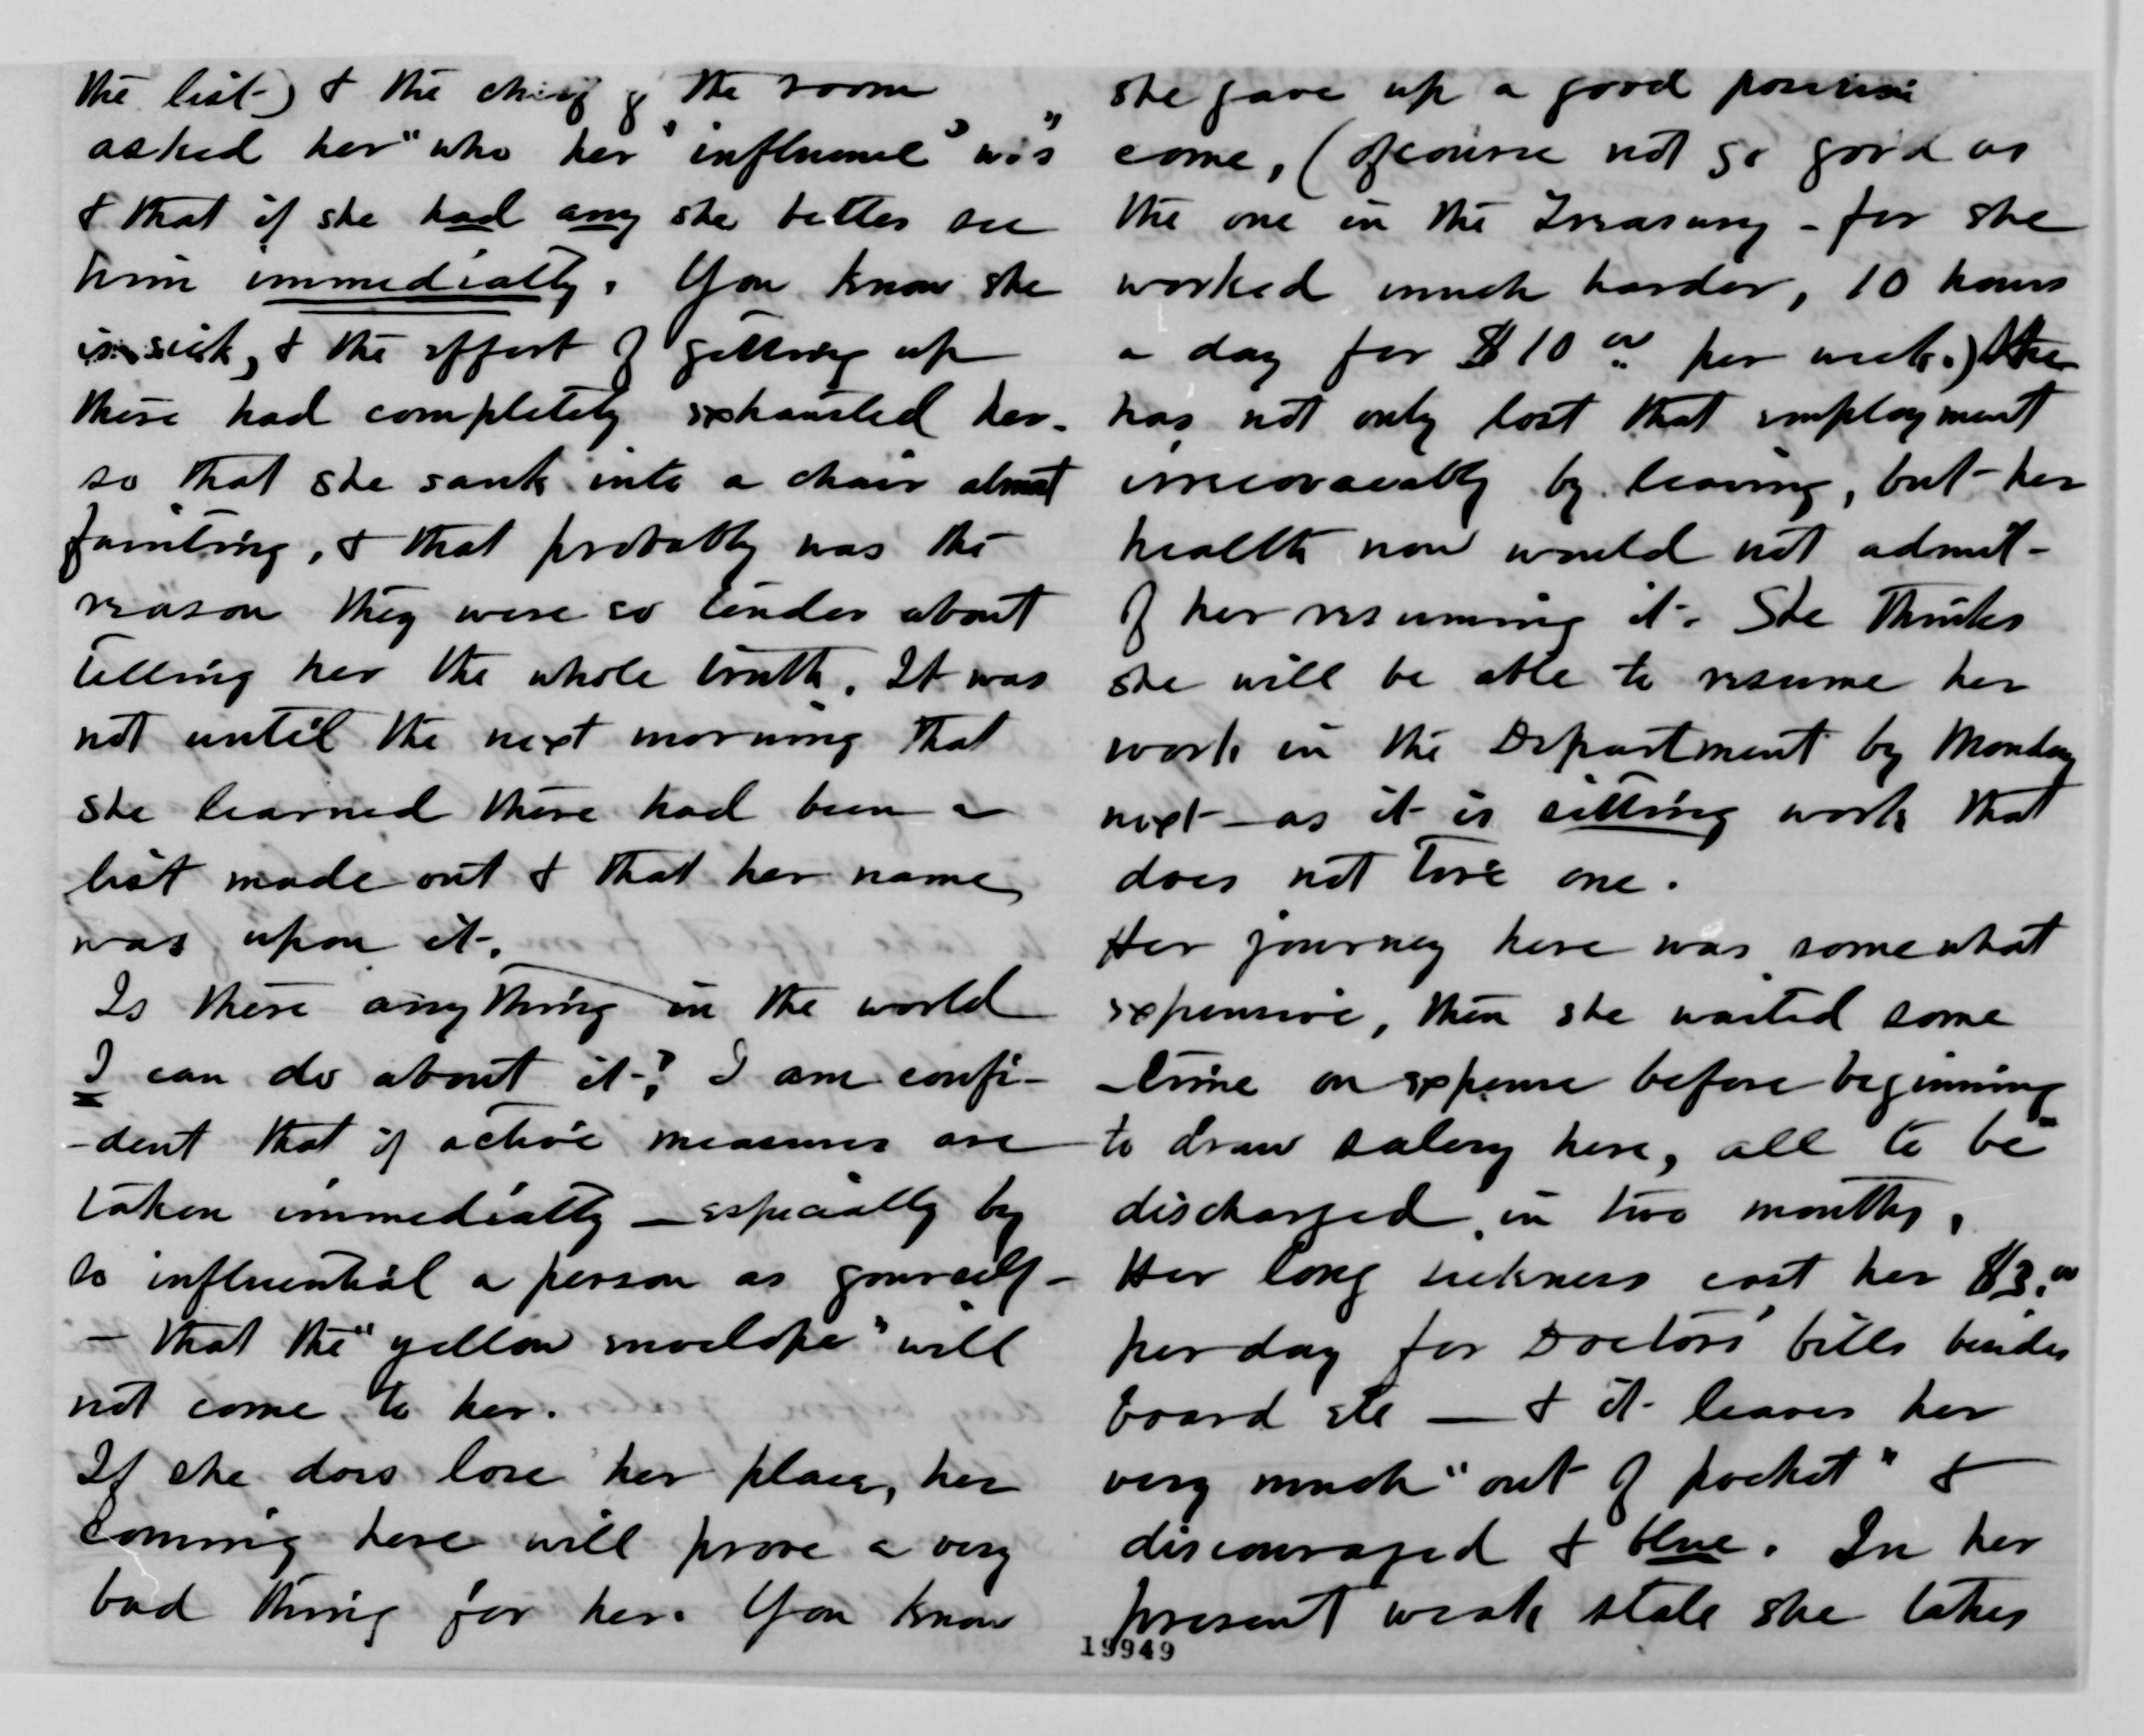 the list) & the chief of the room
asked her "who her "influence" was"
& that if she had any she better see
him immediatly. You know she
is sick, & the effort of getting up
there had completely exhausted her.
so that she sank into a chair almost
fainting, & that probably was the
reason they were so tender about
telling her the whole truth. It was
not until the next morning that
she learned there had been a
list made out & that her name
was upon it.
Is there anything in the world
I can do about it? I am confi-
-dent that if active measures are
taken immediatly — especially by
so influential a person as yourself -
— that the "yellow envelope" will
not come to her.
If she does lose her place, her
coming here will prove a very
bad thing for her. You know
she gave up a good position
come, (ofcourse not so good as
the one in the Treasury - for she
worked much harder, 10 hours
a day for $10 00 per week.) She
has not only lost that employment
irrecoverably by leaving, but her
health now would not admit
of her resuming it. She thinks
she will be able to resume her
work in the Department by Monday
next — as it is sitting work that
does not tire one.
Her journey here was somewhat
expensive, then she waited some
-time on expense before beginning
to draw salery here, all to be
discharged in two months.
Her long sickness cost her $3.00
per day for Doctors' bills besides
board etc — & it leaves her
very much "out of pocket" &
discouraged & blue. In her
present weak state she takes
19949